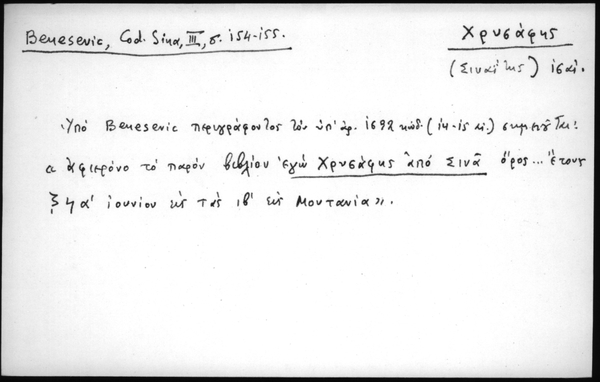 Benesevic, Cod. Sina, III, σ. 154-155.
Χρυσάφης
(Σιναΐτης) ισαϊ.
Ὑπό Benesevic περιγράφοντος τόν ὑπ' ἀρ. 1692 κώδ. (14-15 αἰ.) σημειοῦται:
« ἀφιερόνο τό παρόν βιβλίον ἐγώ Χρυσάφης ἀπό Σινᾶ ὄρος... ἔτους
ζϞα' ἰουνίου εἰς τάς ιβ' εἰς Μουτανία».